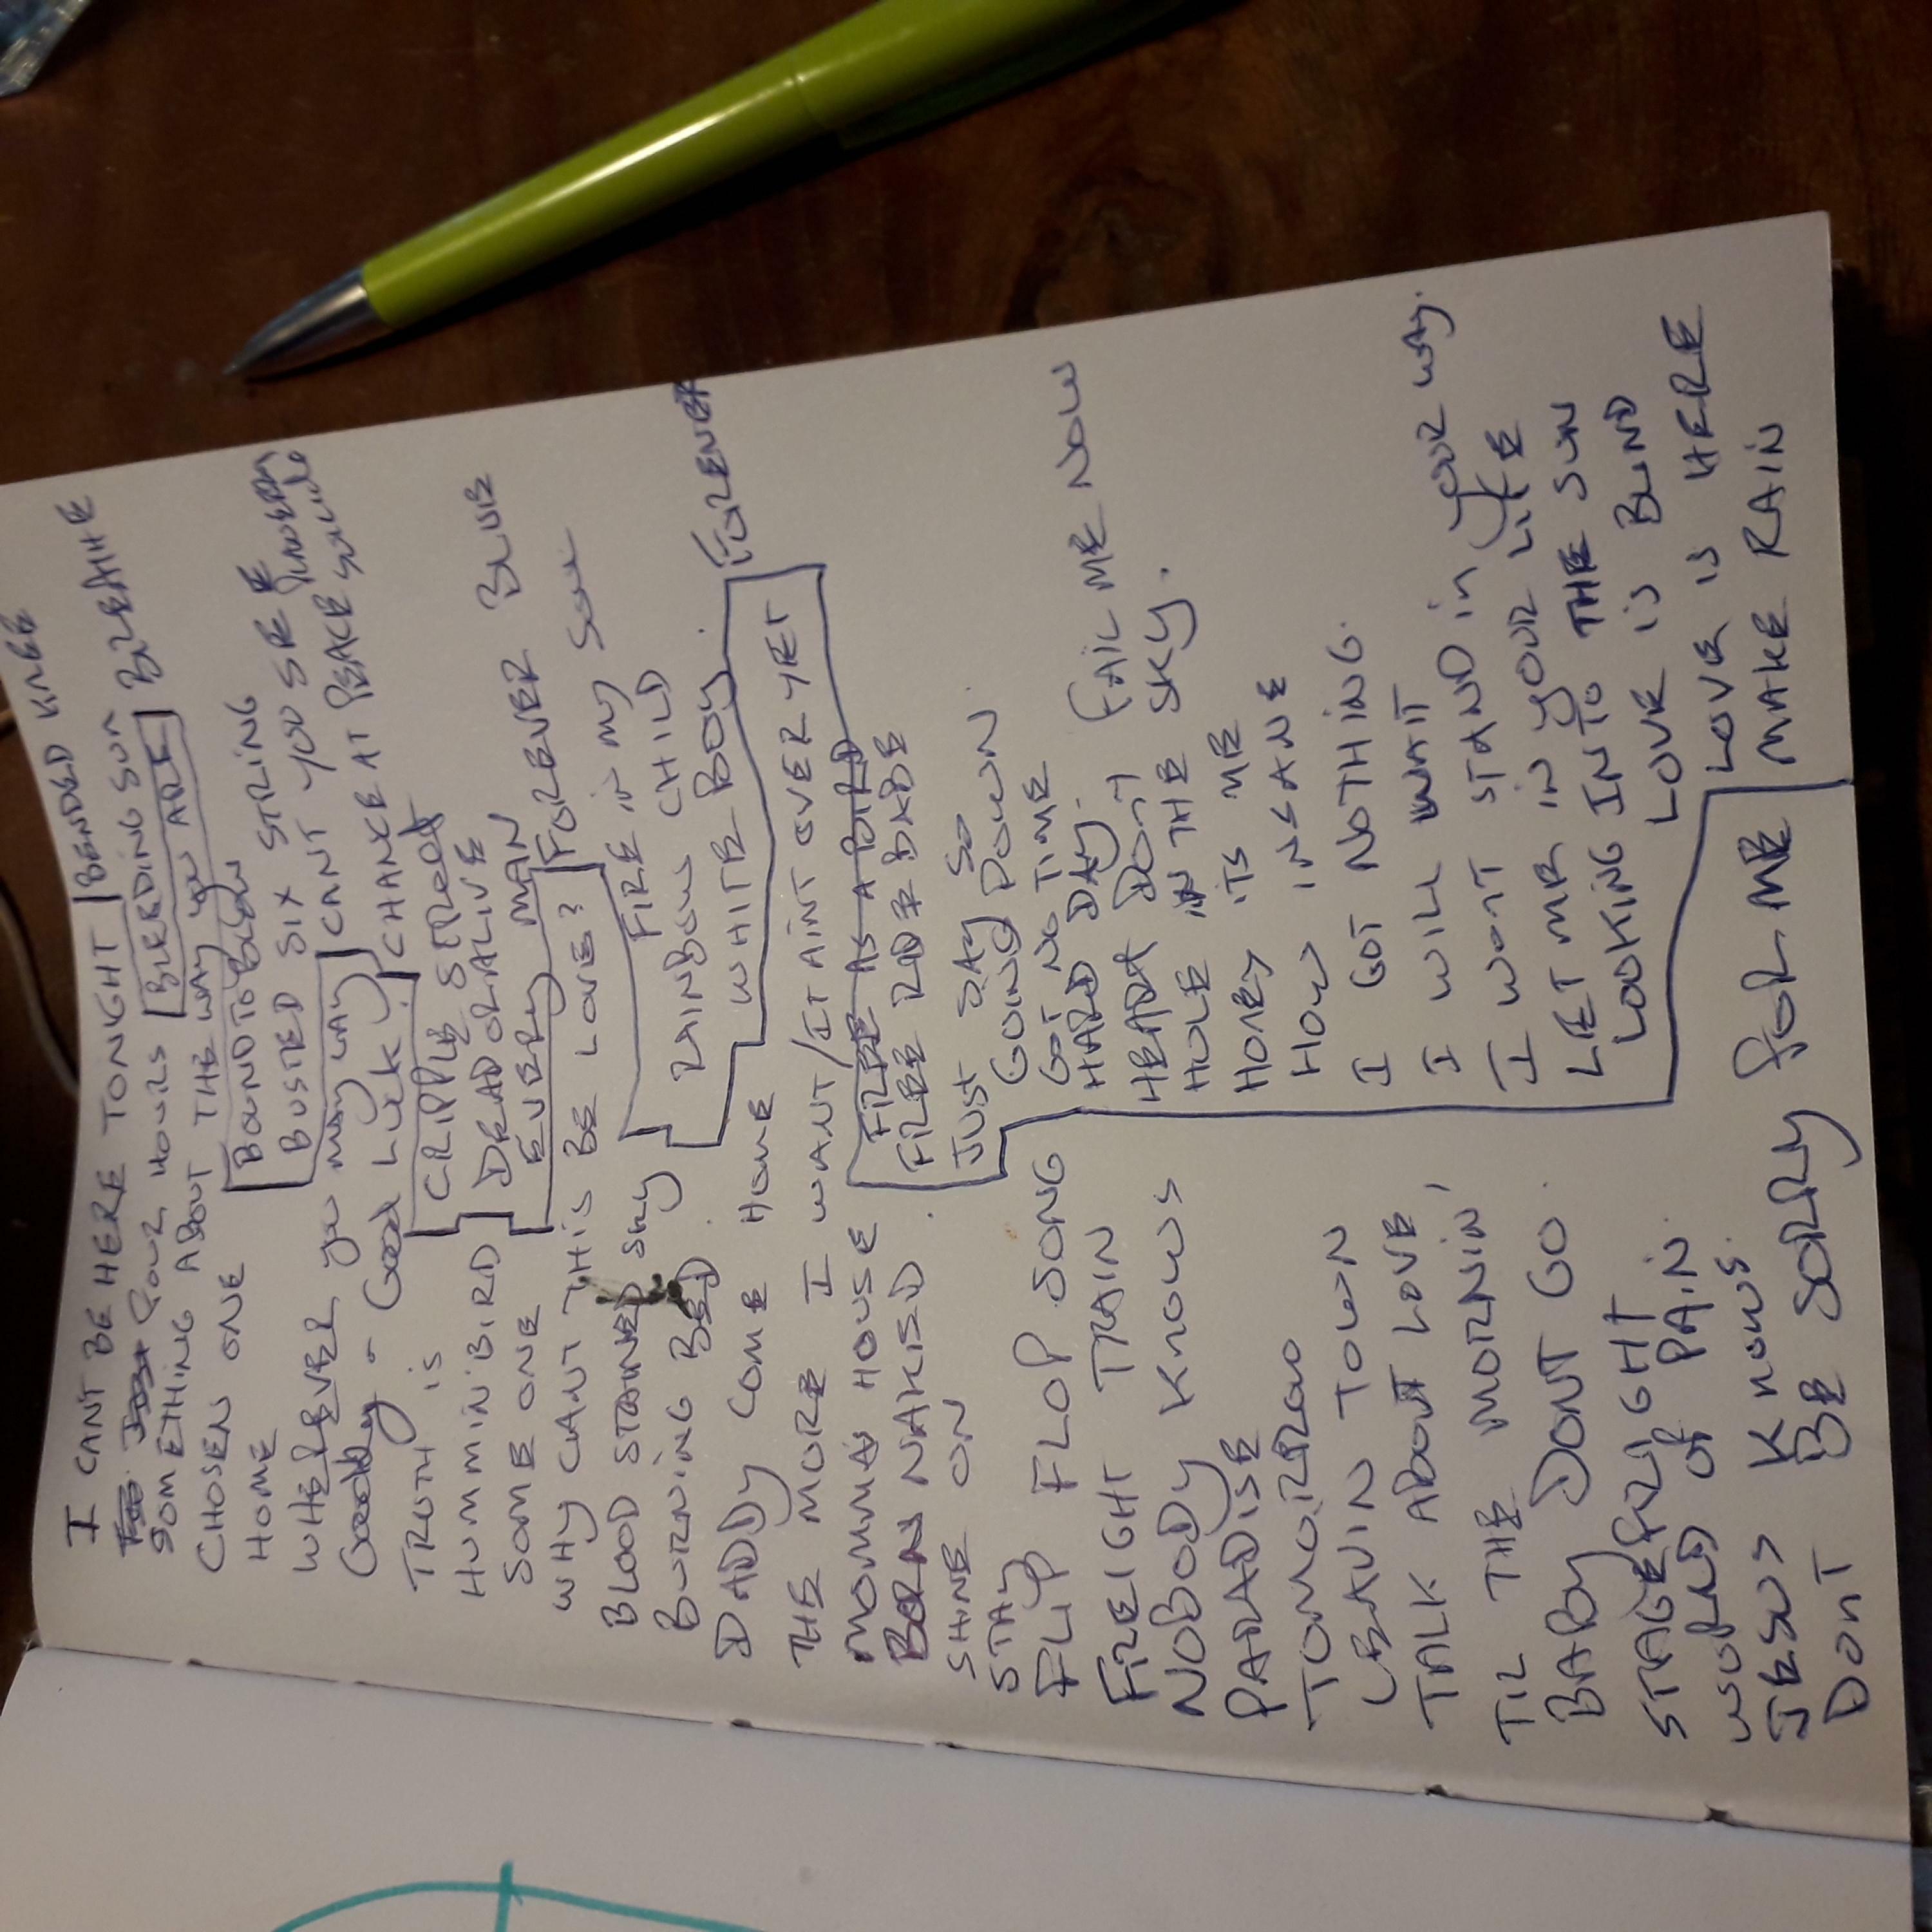 I CANT BE HERE TONIGHT
FOUR HOURS
SOMETHING ABOUT THE WAY YOU ARE
CHOSEN ONE
HOME
WHEREVER YOU MAY LAY
Goodbye - Good Luck
TRUTH IS
HUMMINBIRD
SOME ONE
WHY CANT THIS BE LOVE?
BLOOD STAINED SKY
BURNING BED
DADDY COME HOME HOME
THE MORE I WANT / IT AINT OVER YET
MOMMA HOUSE
BORN NAKED
SHINE ON
STAY
FLIP FLOP SONG
FREIGHT TRAIN
NOBODY KNOWS
PARADISE
TOMORROW
LEAVIN TOWN
TALK ABOUT LOVE
TIL THE MORNIN'
BABY DONT GO
STAGEFRIGHT
WORLD OF PAIN
JESUS KNOWS
DONT BE SORRY FOR ME
BENDED KNEE
BLEEDING SUN
BREATHE
BOUND TO BLOW
BUSTED SIX STRING
CANT YOU SEE
CHANCE AT PEACE
CRIPPLE STREET
DEAD OR ALIVE
EVERY MAN
FOREVER BLUE
FIRE IN MY SOUL
RAINBOW CHILD
WHITE BOY
FOREVER
FREE AS A BIRD
FREE RIDE BABE
JUST SAY SO
GOING DOWN
GOT NO TIME
HARD DAY
HEART DONT FAIL ME NOW
HOLE IN THE SKY
HONEY ITS ME
HOW INSANE
I GOT NOTHING
I WILL WAIT
I WONT STAND in your way
LET ME IN YOUR LIFE
LOOKING INTO THE SUN
LOVE IS BLIND
LOVE IS HERE
MAKE RAIN